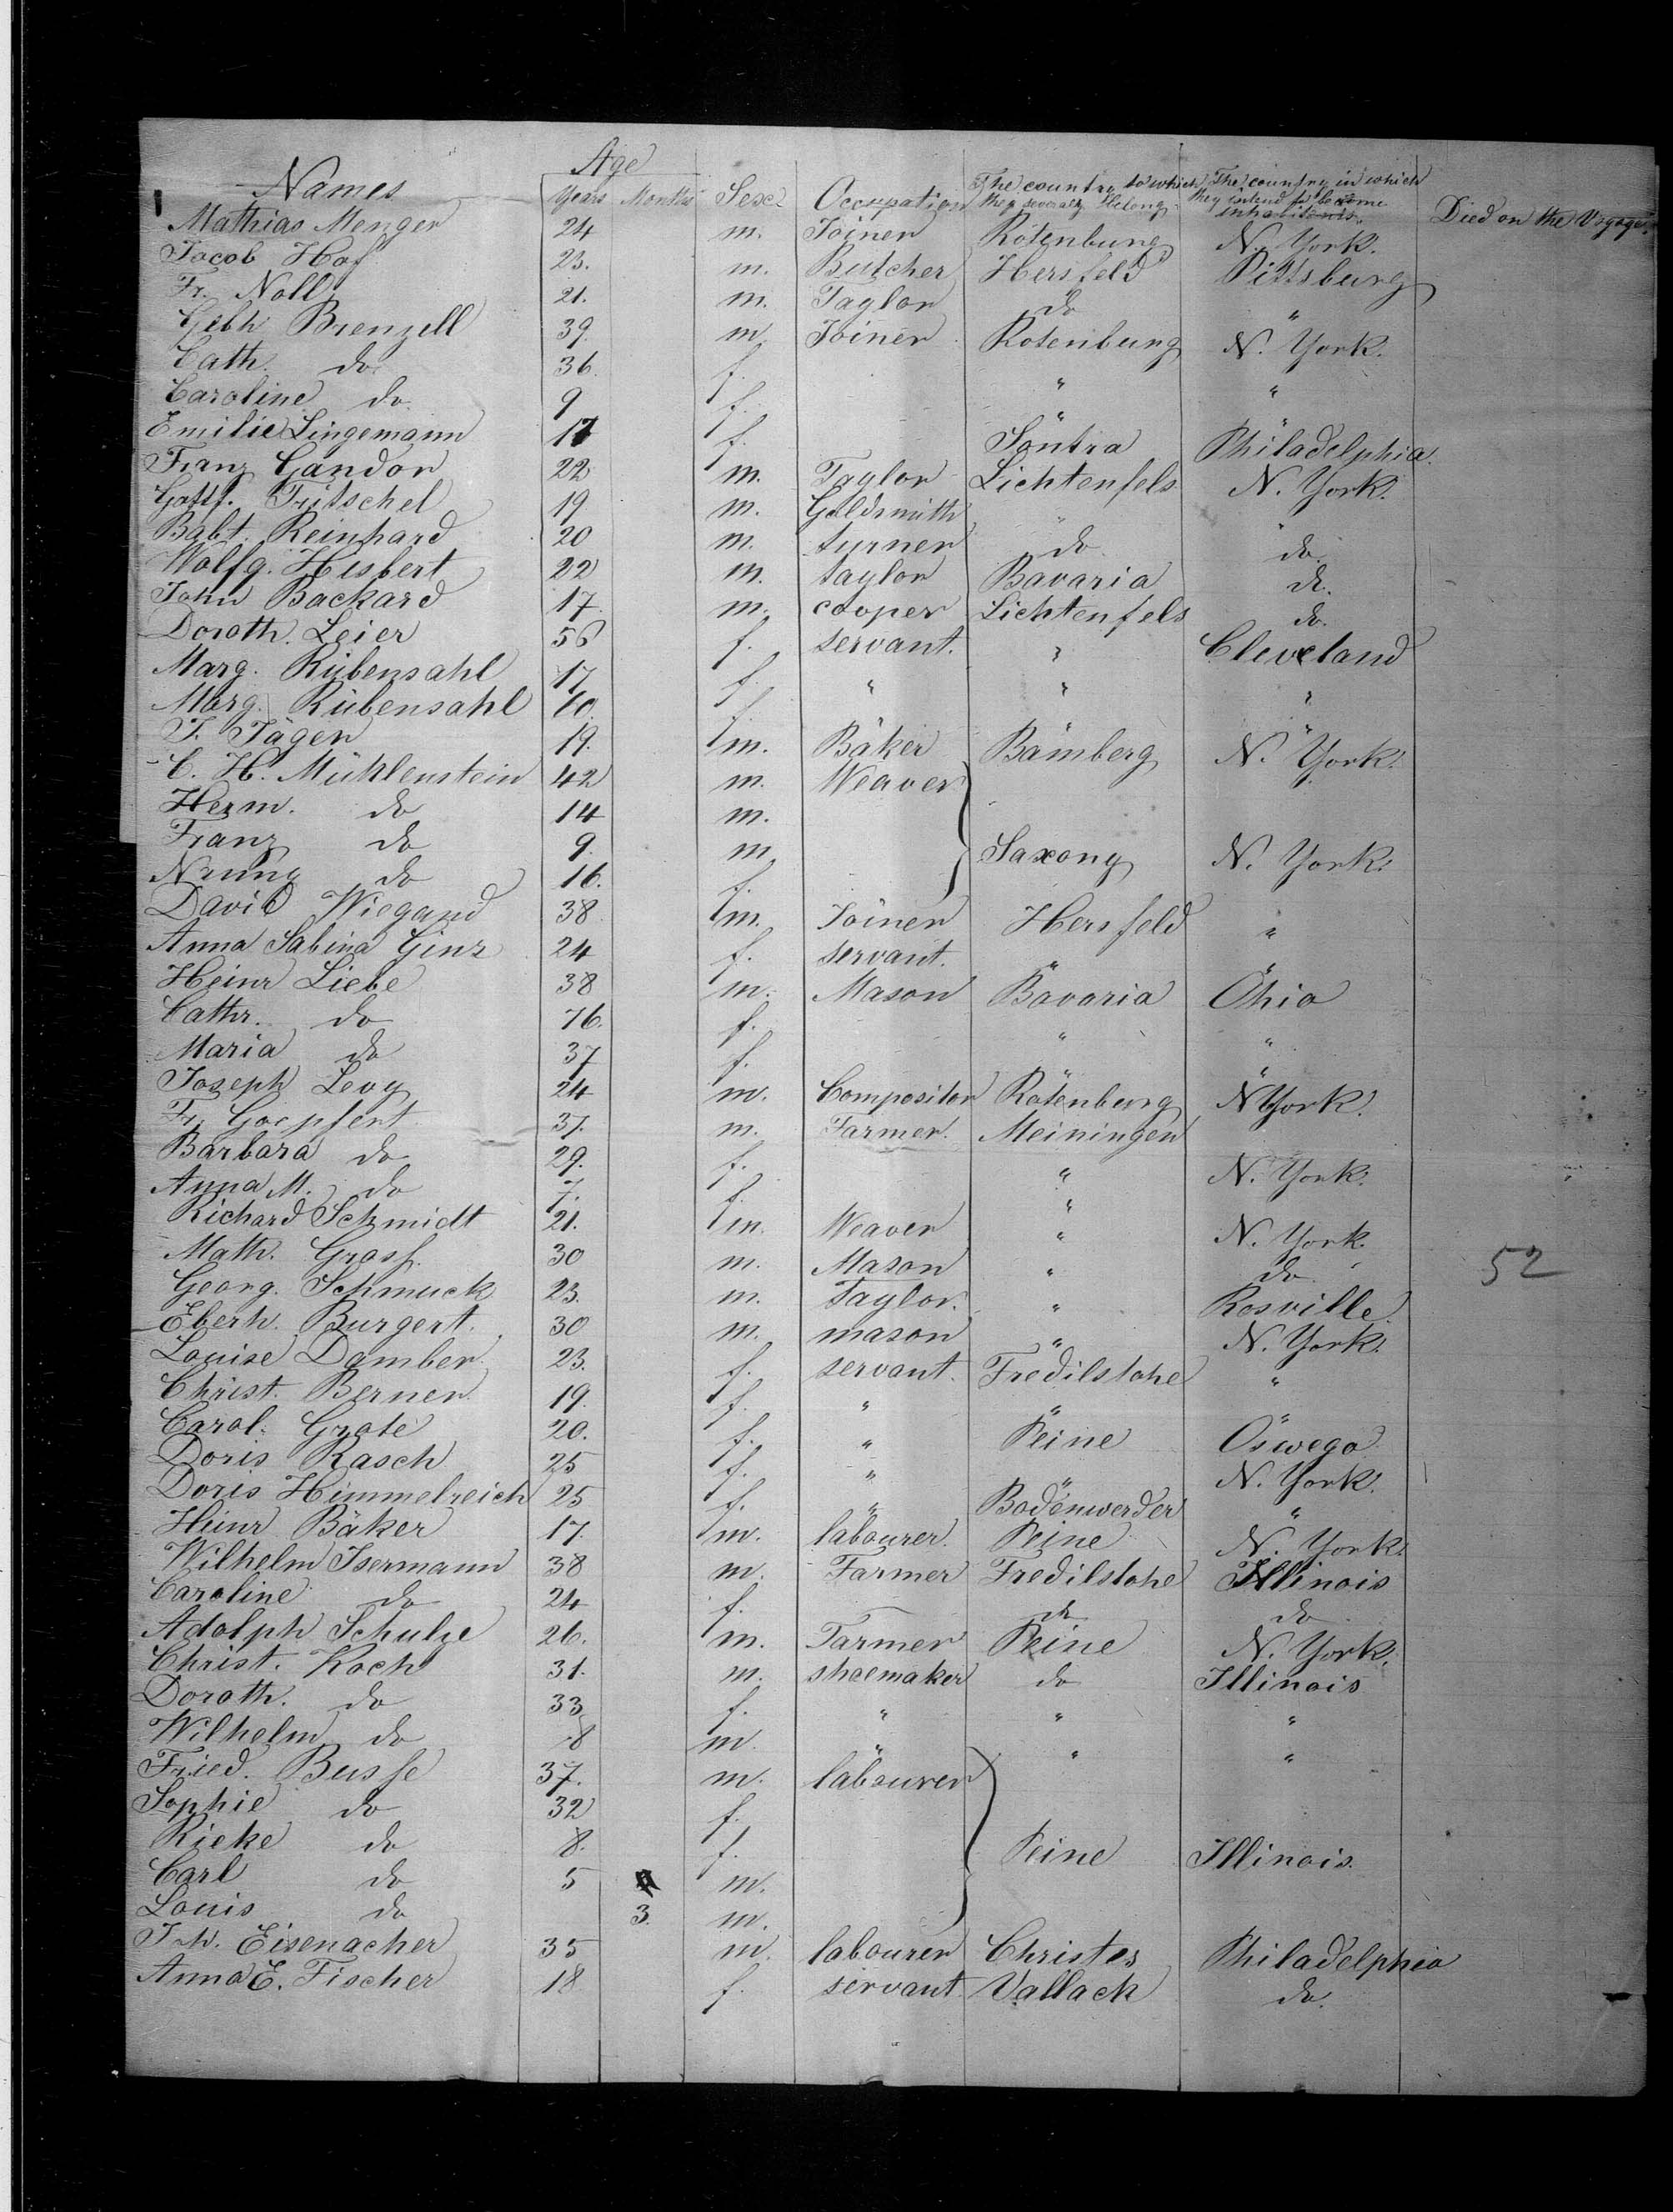 Age
Names Years Months Sex Occupation The country to which they severaly belong The country in which they intend to become inhabitants Died on the Voyage.
Mathias Menger 24 m. Joiner Rotenburg N. York.
Jacob Hof 23. m. Butcher Hersfeld Pittsburg
Fr. Noll 21. m. Taylor do "
Gebh Brenzell 39. m. Joiner Rotenburg N. York.
Cath. do 36. f. " "
Caroline do. 9 f. "
Emilie Lingemann 17 f. Sontra Philadelphia.
Franz Gandor 22 m. Taylor Lichtenfels N. York.
Gottf. Fritschel 19 m. Goldsmith " "
Babt. Reinhard 20 m. turner do do.
Wolfg. Hesbert 22 m. taylor Bavaria do.
John Backard 17. m. cooper Lichtenfels do.
Doroth. Leier 56 f. servant. " Cleveland
Marg. Rübensahl 17 f. " " "
Marg. Rübensahl 10. f. "
F. Jäger 19. m. Bäker Bamberg N. York.
C. H. Mühlenstein 42 m. Weaver
Herm. do 14 m.
Franz do 9. m. Saxony N. York.
do 16. f.
David Wiegand 38 m. Joiner Hersfeld "
Anna Sabina Ginz 24 f. servant. " "
Heinr Liebe 38 m. Mason Bavaria Ohio
Cathr. do 76. f. " "
Maria do 37 f. " "
Joseph Levy 24 m. Compositor Rotenburg N York.
Fr. Goepfert 37. m. Farmer. Meiningen
Barbara do 29. f. " N. York.
Anna M. do 7. f. "
Richard Schmidt 21. m. Weaver " N. York.
Math. Grass 30 m. Mason " do
Georg. Schmuck 23. m. Taylor. " Rosville. 52
Eberh. Burgert. 30 m. mason " N. York.
Louise Damber 23. f. servant. Fredilslohe "
Christ. Berner 19. f. " " "
Carol. Grote 20. f. " Peine Oswego
Doris Rasch 25 f. " " N. York.
Doris Himmelreich 25 f. " Bodenwerder "
Heinr Bäker 17. m. labourer. Peine N. York.
Wilhelm Isermann 38 m. Farmer Fredilslohe Illinois
Caroline do 24 f. do do
Adolph Schulze 26. m. Farmer Peine N. York.
Christ. Koch 31. m. shoemaker do Illinois
Doroth. do 33 f. " " "
Wilhelm do 8 m. " " "
Fried. Busse 37. m. labourer
Sophie do 32 f.
Rieke do 8. f. Peine Illinois.
Carl do 5 m.
Louis do 3. m.
Joh. Eisenacher 35 m. labourer Christes Philadelphia
Anna E. Fischer 18 f. servant Vallack do.